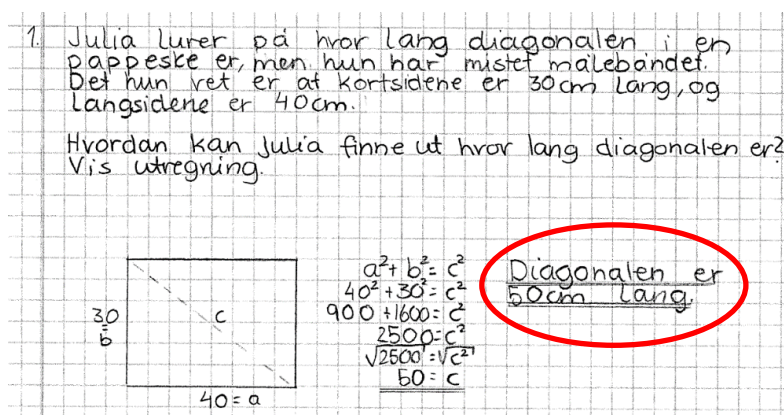 1. Julia lurer på hvor lang diagonalen i en
pappeske er, men hun har mistet målebåndet.
Det hun vet er at kortsidene er 30cm lang, og
langsidene er 40cm.
Hvordan kan Julia finne ut hvor lang diagonalen er?
Vis utregning.
30
=
b
c
40 = a
a² + b² = c²
40² + 30² = c²
900 + 1600 = c²
2500 = c²
√2500 = √c²
50 = c
Diagonalen er
50cm lang.